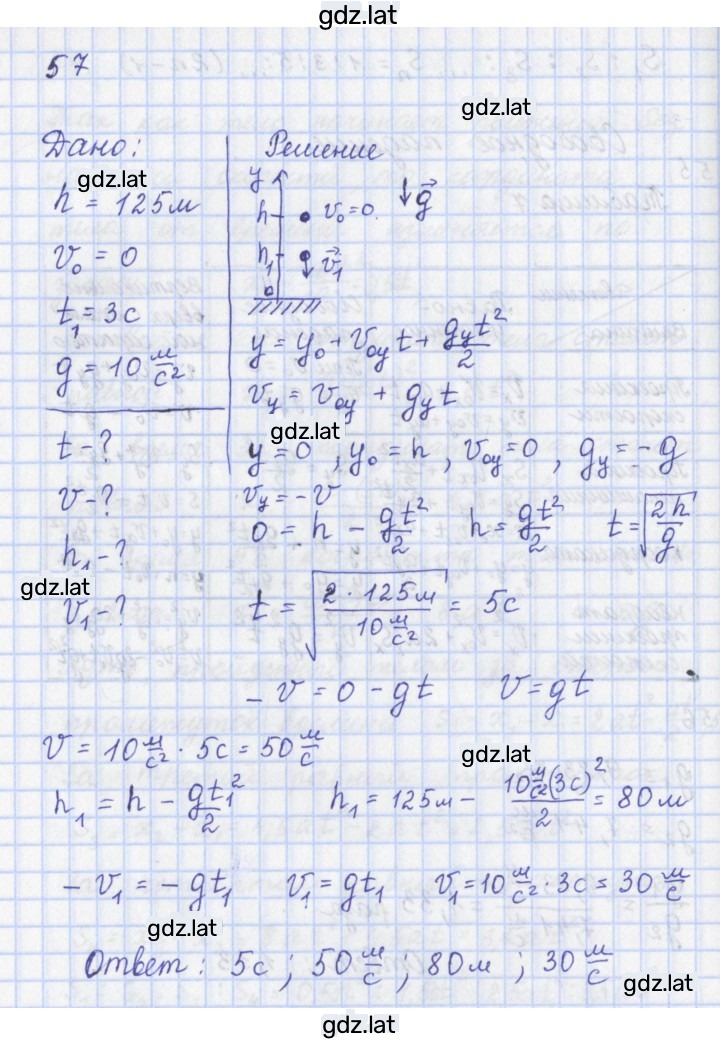 gdz.lat
57
gdz.lat
Дано:
gdz.lat
h = 125 м
v₀ = 0
t₁ = 3 с
g = 10 м/с²
t - ?
v - ?
h₁ - ?
gdz.lat
v₁ - ?
Решение
y
h
v₀ = 0
g⃗
h₁
v⃗₁
0
y = y₀ + v₀y t + gy t²/2
vy = v₀y + gy t
gdz.lat
y = 0, y₀ = h, v₀y = 0, gy = -g
vy = -v
0 = h - gt²/2 h = gt²/2 t = √(2h/g)
t = √(2 · 125 м / 10 м/с²) = 5 с
- v = 0 - gt v = gt
v = 10 м/с² · 5 с = 50 м/с
gdz.lat
h₁ = h - gt₁²/2 h₁ = 125 м - 10 м/с² (3 с)²/2 = 80 м
- v₁ = - gt₁ v₁ = gt₁ v₁ = 10 м/с² · 3 с = 30 м/с
gdz.lat
Ответ: 5 с; 50 м/с; 80 м; 30 м/с
gdz.lat
gdz.lat